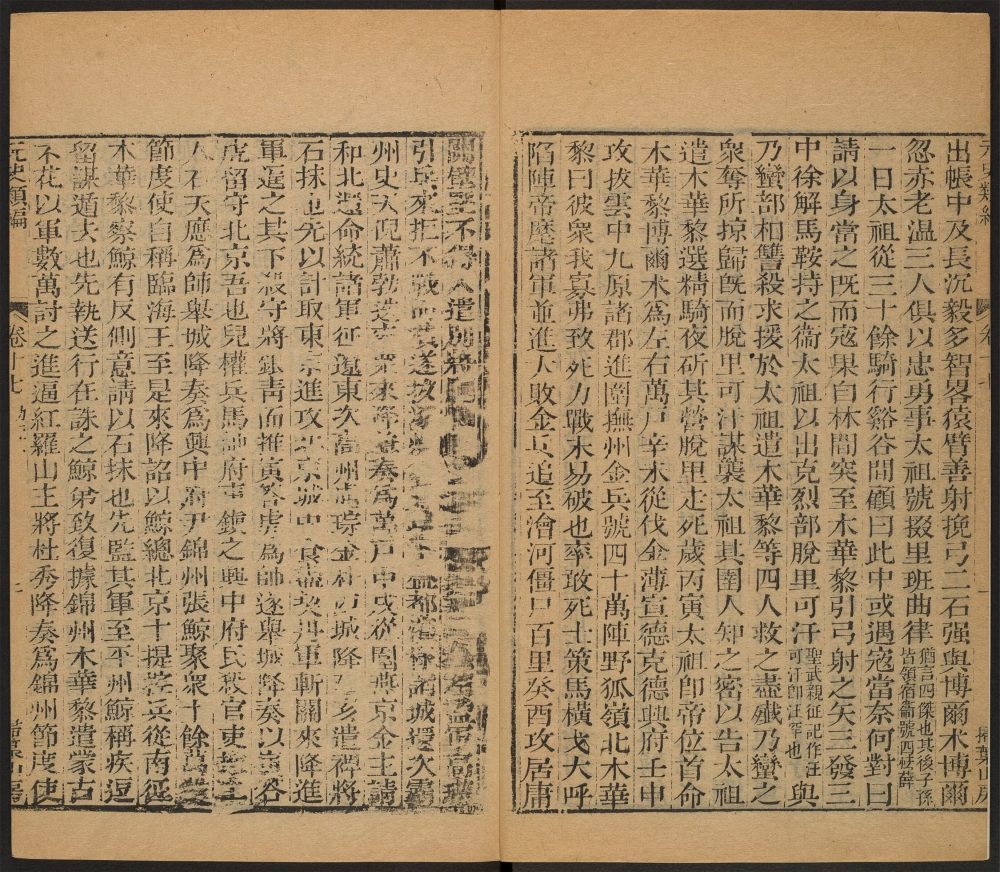 出帳中及長沉毅多智畧猿臂善射挽弓二石强與博爾朮博爾
忽赤老温三人俱以忠勇事太祖號掇里班曲律猶言四傑也其後子孫皆領宿衞號四怯薛
一日太祖從三十餘騎行谿谷間顧曰此中或遇寇當奈何對曰
請以身當之既而寇果自林間突至木華黎引弓射之矢三發三
中徐解馬鞍持之衞太祖以出克烈部脫里可汗聖武親征記作汪可汗卽汪罕也與
乃蠻部相讐殺求援於太祖遣木華黎等四人救之盡殲乃蠻之
衆奪所掠歸既而脫里可汗謀襲太祖其圉人知之密以告太祖
遣木華黎選精騎夜斫其營脫里走死歲丙寅太祖卽帝位首命
木華黎博爾朮爲左右萬戸辛未從伐金薄宣德克德興府壬申
攻拔雲中九原諸郡進圍撫州金兵號四十萬陣野狐嶺北木華
黎曰彼衆我寡弗致死力戰未易破也率敢死士策馬橫戈大呼
陷陣帝麾諸軍並進大敗金兵追至澮河僵尸百里癸酉攻居庸
關壁堅不得入遣別將
引兵來拒不戰
州史天倪蕭勃迭率衆來降並奏爲萬戸甲戌從圍燕京金主請
和北還命統諸軍征遼東次高州盧琮金朴以城降乙亥遣裨將
石抹也先以計取東京進攻北京城中食盡契丹軍斬關來降進
軍逼之其下殺守將銀青而推寅答虎爲帥遂舉城降奏以寅答
虎留守北京吾也兒權兵馬帥府事鎮之興中府民殺官吏推土
人石天應爲帥舉城降奏爲興中府尹錦州張鯨聚衆十餘萬殺
節度使自稱臨海王至是來降詔以鯨總北京十提控兵從南征
木華黎察鯨有反側意請以石抹也先監其軍至平州鯨稱疾逗
留謀遁去也先執送行在誅之鯨弟致復據錦州木華黎遣蒙古
不花以軍數萬討之進逼紅羅山主將杜秀降奏爲錦州節度使
元史類編
卷十七